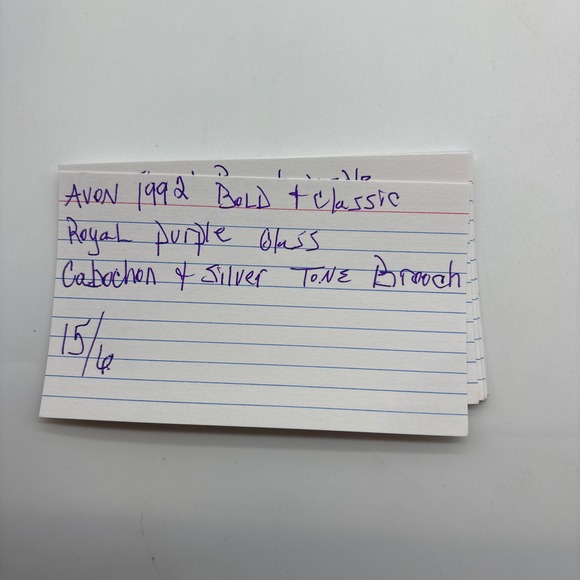 AVON 1992 BOLD + Classic
Royal purple Glass
Cabochon + Silver TONE Brooch
15/6